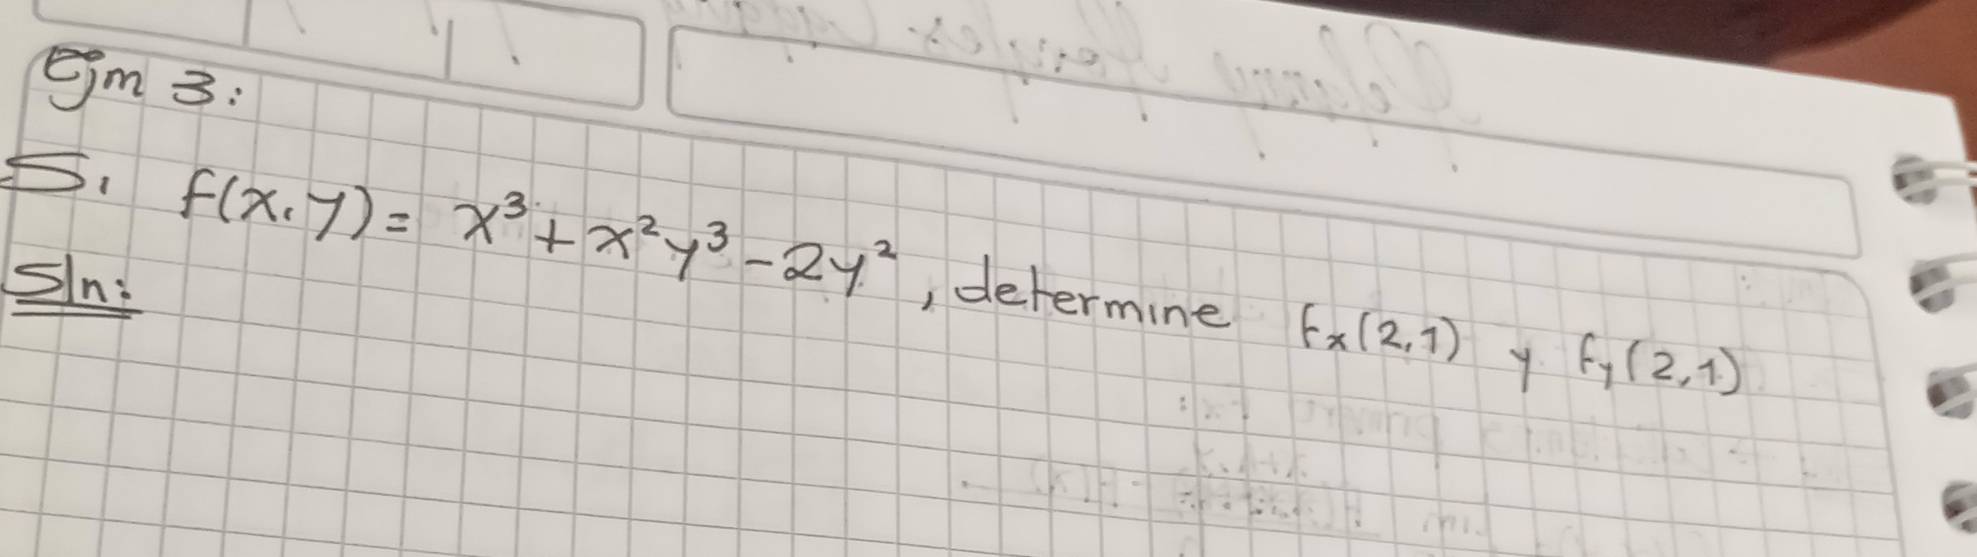 Ejm 3:
Si f(x,y) = x³ + x²y³ - 2y², determine fx(2,1) y fy(2,1)
Sln: